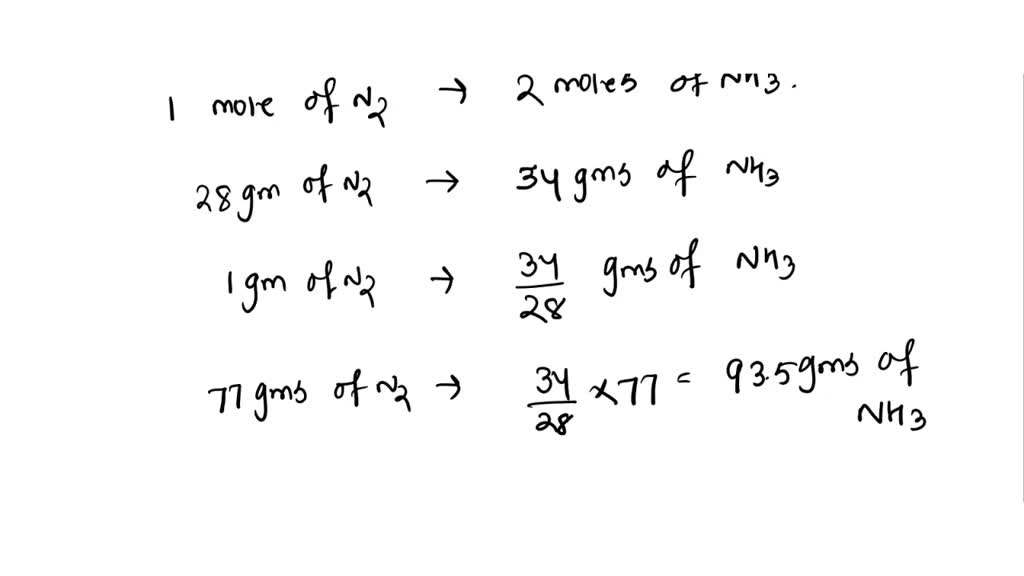 1 mole of N2 → 2 moles of NH3.
28 gm of N2 → 34 gms of NH3
1 gm of N2 → 34/28 gms of NH3
77 gms of N2 → 34/28 × 77 = 93.5 gms of
NH3